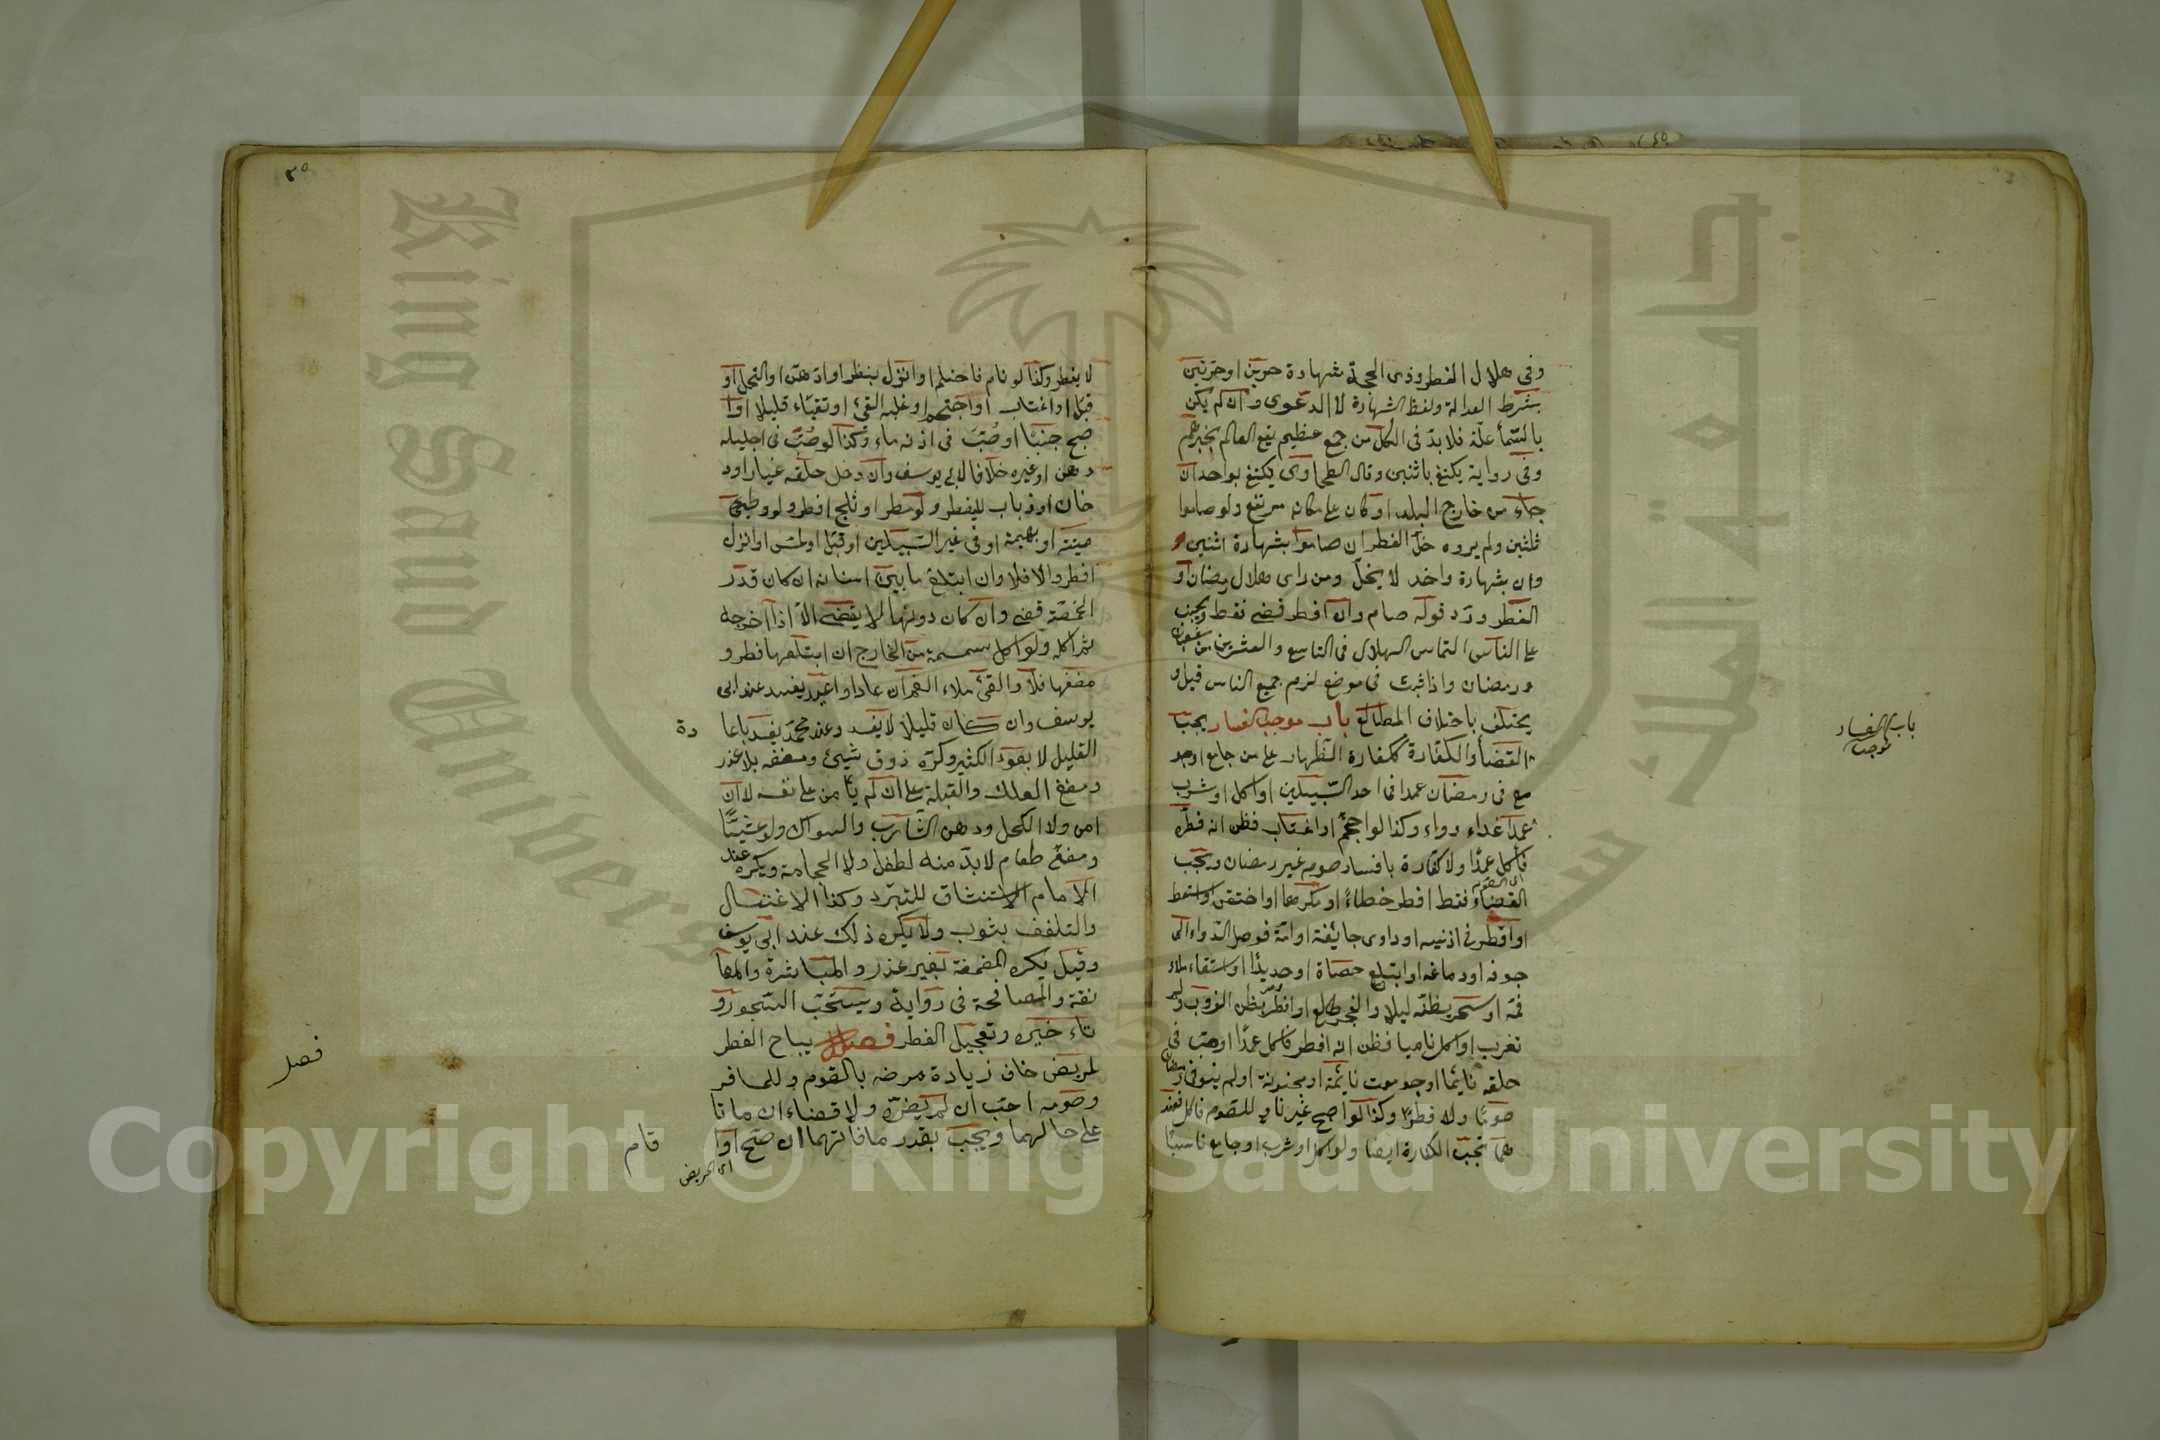 وفي هلال الفطر وذي الحجة شهادة حرين او حر وحرتين
بشرط العدالة ولفظ الشهادة لا الدعوى وان لم يكن
بالسماء علة فلا بد في الكل من جمع عظيم يقع العلم بخبرهم
وفي رواية يكتفى باثنين وقال الطحاوى يكتفى بواحد ان
جاء من خارج البلد او كان على مكان مرتفع ولو صاموا
ثلثين ولم يروه حل الفطر ان صاموا بشهادة اثنين
وان بشهادة واحد لا يحل ومن راى هلال رمضان او
الفطر ورد قوله صام وان افطر قضى فقط ويجب
على الناس التماس الهلال في التاسع والعشرين من شعبان
ورمضان واذا ثبت في موضع لزم جميع الناس وقيل
يختلف باختلاف المطالع باب موجب الفساد يجب
القضاء والكفارة ككفارة الظهار على من جامع او جو
مع في رمضان عمدا في احد السبيلين او اكل او شرب
عمدا غذاء او دواء وكذا لو احتجم او اغتاب فظن انه فطره
فاكل عمدا ولا كفارة بافساد صوم غير رمضان ويجب
القضاء فقط لو افطر خطاء او مكرها او احتقن او استعط
او اقطر في اذنيه او داوى جائفة او آمة فوصل الدواء الى
جوفه او دماغه او ابتلع حصاة او حديدا او استقاء ملاء
فمه او تسحر يظنه ليلا والفجر طالع او افطر يظن الغروب ولم
تغرب او اكل ناسيا فظن انه افطر فاكل عمدا او صب في
حلقه نائما او جومعت نائمة او مجنونة او لم ينو في رمضان
صوما ولا فطرا وكذا لو اصبح غير ناو للصوم فاكل فعند
هما تجب الكفارة ايضا ولو اكل او شرب او جامع ناسيا
باب الفساد
موجب
٣٥
لا يفطر وكذا لو نام فاحتلم او انزل بنظر او ادهن او اكتحل او
قبل او اغتاب او احتجم او غلبه القئ او تقياء قليلا او ا
صبح جنبا او صب في اذنه ماء وكذا لو صب في احليله
دهن او غيره خلافا لابي يوسف وان دخل حلقه غبار او د
خان او ذباب لا يفطر ولو مطر او ثلج افطر ولو وطئ
ميتة او بهيمة او في غير السبيلين او قبل او لمس او انزل
افطر والا فلا وان ابتلع ما بين اسنانه ان كان قدر
الحمصة قضى وان كان دونها لا يقضى الا اذا اخرجه
ثم اكله ولو اكل سمسمة من الخارج ان ابتلعها فطر و
مضغها فلا والقئ ملاء الفم ان عاد او اعيد يفسد عند ابى
يوسف وان كان قليلا لا يفسد وعند محمد يفسد باعا
دة
القليل لا بعود الكثير وكره ذوق شيئ ومضغه بلا عذر
ومضغ العلك والقبلة على ان لم يأمن على نفسه لا ان
امن ولا الكحل ودهن الشارب والسواك ولو عشيا
ومضغ طعام لا بد منه لطفل ولا الحجامة ويكره عند
الامام الاستنشاق للتبرد وكذا الاغتسال
والتلفف بثوب ولا يكره ذلك عند ابى يوسف
وقيل يكره المضمضة بغير عذر والمباشرة والمعا
نقة والمصافحة في رواية ويستحب السحور و
تاء خيره وتعجيل الفطر فصل يباح الفطر
لمريض خاف زيادة مرضه بالصوم وللمسافر
وصومه احب ان لم يضره ولا قضاء ان ماتا
على حالهما ويجب بقدر ما فاتهما ان صح او ا
اى المريض
قام
فصل
Copyright © King Saud University
King Saud University
جامعة الملك سعود